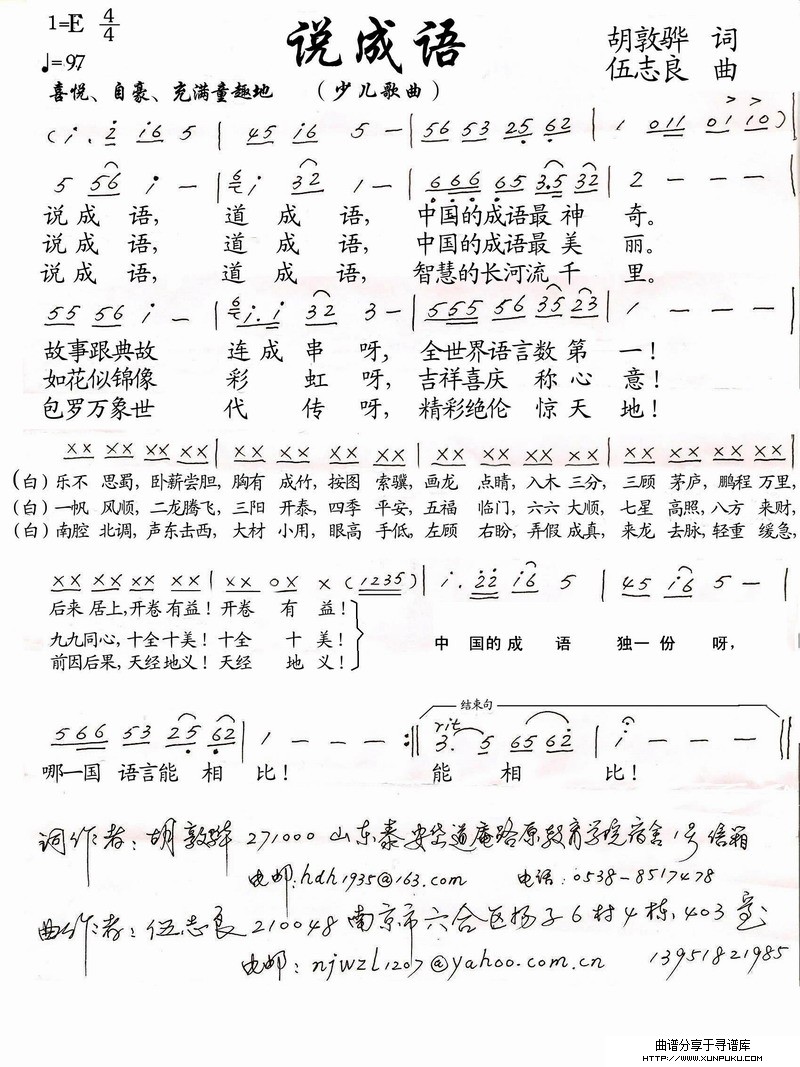 1=E 4/4
♩=97
说成语
胡敦骅 词
伍志良 曲
喜悦、自豪、充满童趣地 （少儿歌曲）
说成 语， 道 成 语， 中国的成语最 神 奇。
说成 语， 道 成 语， 中国的成语最 美 丽。
说成 语， 道 成 语， 智慧的长河流 千 里。
故事跟典故 连 成 串 呀， 全世界语言数 第 一！
如花似锦像 彩 虹 呀， 吉祥喜庆 称 心 意！
包罗万象世 代 传 呀， 精彩绝伦 惊 天 地！
(白) 乐不 思蜀，卧薪尝胆，胸有 成竹，按图 索骥，画龙 点睛，入木 三分， 三顾 茅庐，鹏程 万里，
(白) 一帆 风顺，二龙腾飞，三阳 开泰，四季 平安，五福 临门，六六 大顺， 七星 高照，八方 来财，
(白) 南腔 北调，声东击西，大材 小用，眼高 手低。左顾 右盼，弄假 成真， 来龙 去脉，轻重 缓急，
后来 居上，开卷 有益！开卷 有 益！
九九同心，十全 十美！十全 十 美！
前因后果，天经 地义！天经 地 义！
中 国的成 语 独一 份 呀，
结束句
rit
哪一国 语言能 相 比！ 能 相 比！
词作者：胡敦骅 271000 山东泰安岱道庵路原教育学院宿舍1号信箱
电邮：hdh1935@163.com 电话：0538-8517478
曲作者：伍志良 210048 南京市六合区扬子6村4栋403室
电邮：njwzl1207@yahoo.com.cn 13951821985
曲谱分享于寻谱库
HTTP://WWW.XUNPUKU.COM